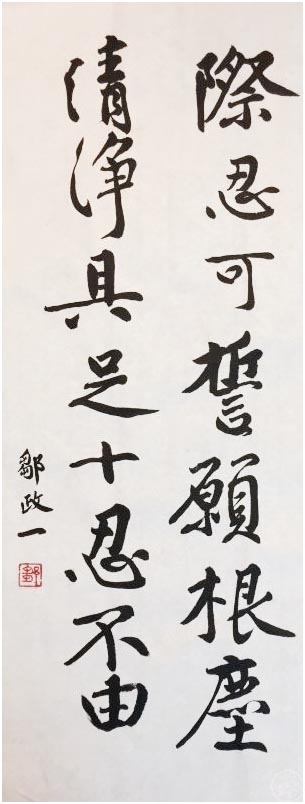 際忍可誓願根塵
清淨具足十忍不由
鄒政一